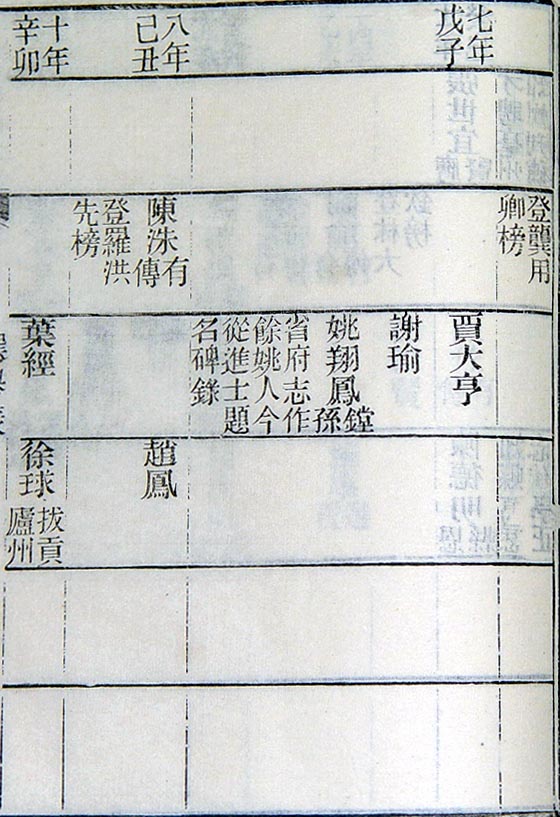 七年
戊子
八年
己丑
十年
辛卯
登龔用
卿榜
陳洙有傳
登羅洪
先榜
賈大亨
謝瑜
姚翔鳳鏜孫
省府志作
餘姚人今
從進士題
名碑錄
葉經
趙鳳
徐球拔貢廬州